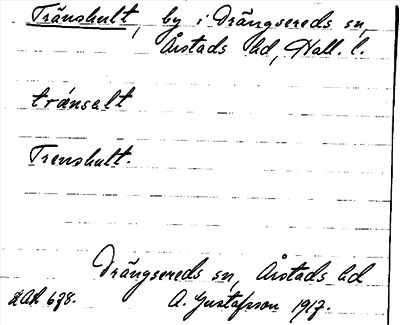 Tränshult, by i Drängsereds sn,
Årstads hd, Hall. l.
tränsalt
Trenshult.
Drängsereds sn, Årstads hd
A. Gustafsson 1917.